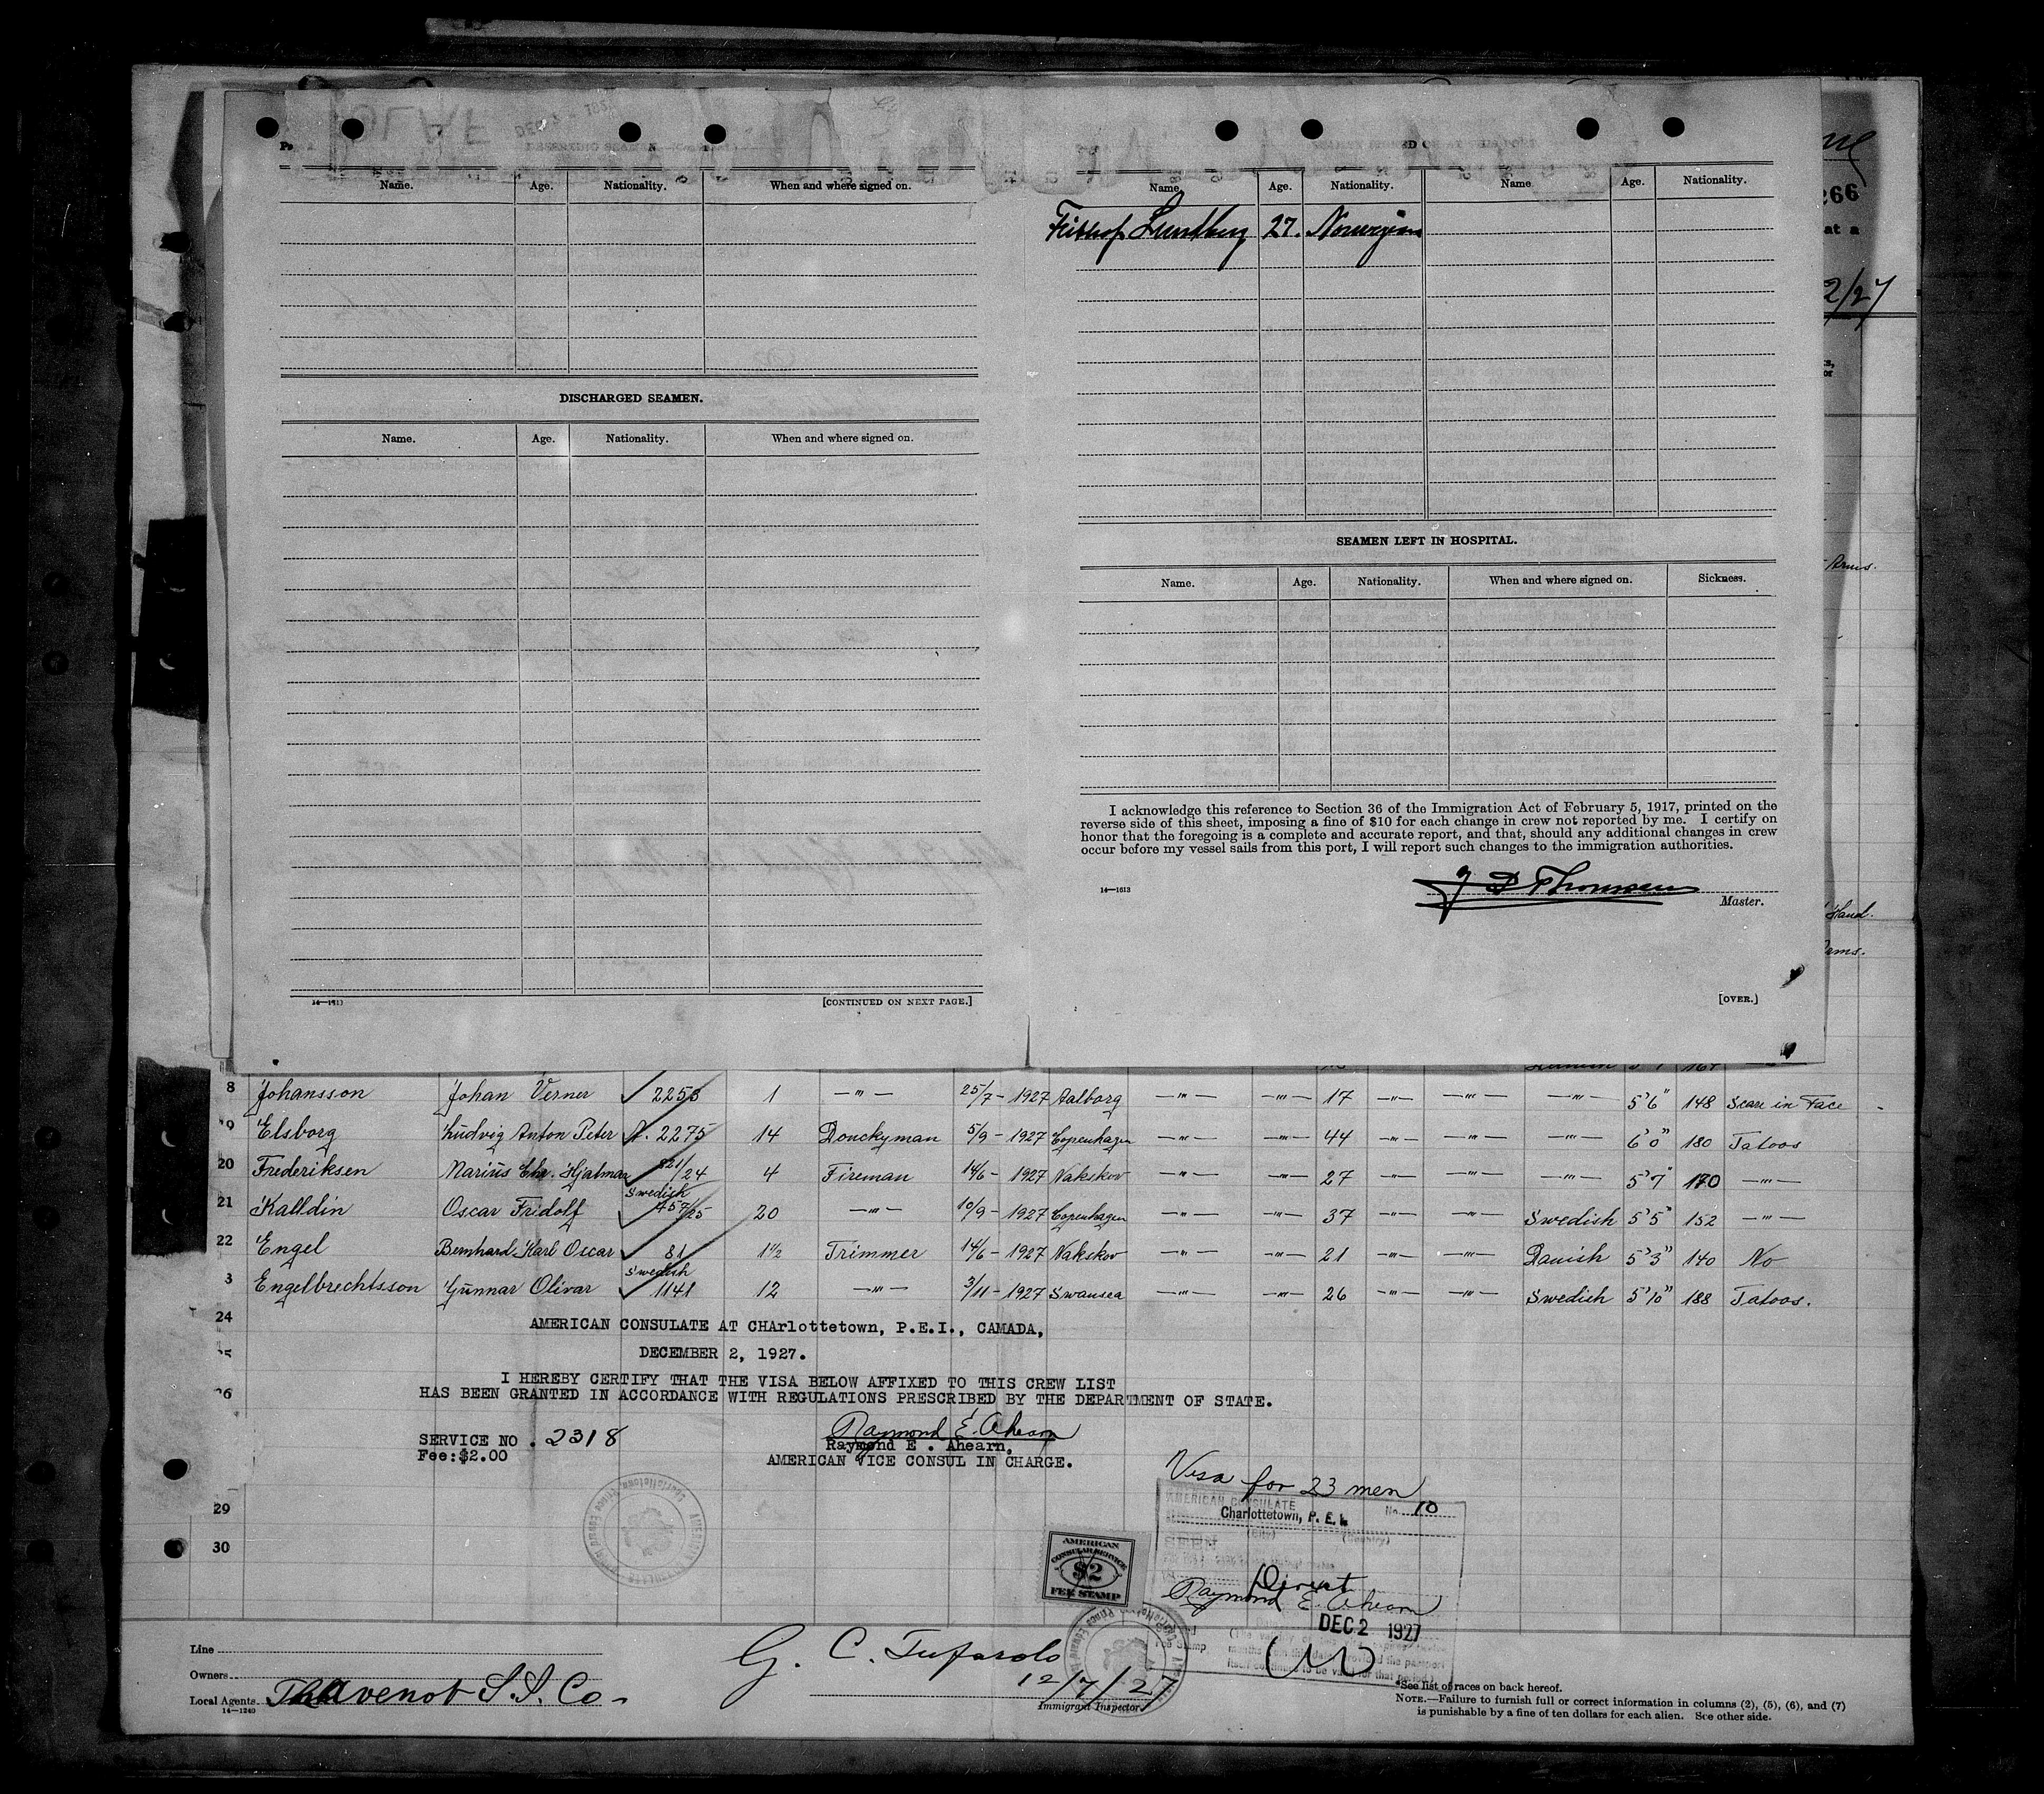 OLAF
Name. Age. Nationality. When and where signed on.
DISCHARGED SEAMEN.
Name. Age. Nationality. When and where signed on.
14—1613 [CONTINUED ON NEXT PAGE.]
Name Age. Nationality. Name Age. Nationality.
Frithof Lundberg 27. Norwegian
SEAMEN LEFT IN HOSPITAL.
Name. Age. Nationality. When and where signed on. Sickness.
I acknowledge this reference to Section 36 of the Immigration Act of February 5, 1917, printed on the
reverse side of this sheet, imposing a fine of $10 for each change in crew not reported by me. I certify on
honor that the foregoing is a complete and accurate report, and that, should any additional changes in crew
occur before my vessel sails from this port, I will report such changes to the immigration authorities.
14—1613
Thomsen
Master.
[OVER.]
266
at a
2/27
Arms.
Hand.
Arms.
8 Johansson Johan Verner 2253 1 —"— 25/7 - 1927 Aalborg —"— —"— 17 —"— —"— —"— 5'6" 148 Scare in Face
9 Elsborg Ludvig Anton Peter A. 2275 14 Donckyman 5/9 - 1927 Copenhagen —"— —"— 44 —"— —"— —"— 6'0" 180 Tatoos
20 Frederiksen Marius Chr. Hjalmar 821/24 4 Fireman 14/6 - 1927 Nakskov —"— —"— 27 —"— —"— —"— 5'7" 170 —"—
21 Kalldin Oscar Fridolf Swedish 457/25 20 —"— 10/9 - 1927 Copenhagen —"— —"— 37 —"— —"— Swedish 5'5" 152 —"—
22 Engel Bernhard Karl Oscar 81 1½ Trimmer 14/6 - 1927 Nakskov —"— —"— 21 —"— —"— Danish 5'3" 140 No
3 Engelbrechtsson Gunnar Olivar Swedish 1141 12 —"— 3/11 - 1927 Swansea —"— —"— 26 —"— —"— Swedish 5'10" 188 Tatoos.
24
AMERICAN CONSULATE AT CHArlottetown, P.E.I., CAMADA,
DECEMBER 2, 1927.
I HEREBY CERTIFY THAT THE VISA BELOW AFFIXED TO THIS CREW LIST
26 HAS BEEN GRANTED IN ACCORDANCE WITH REGULATIONS PRESCRIBED BY THE DEPARTMENT OF STATE.
SERVICE NO. 2318
Fee:$2.00
Raymond E. Ahearn
Raymond E. Ahearn.
AMERICAN VICE CONSUL IN CHARGE.
29
30
Visa for 23 men
AMERICAN CONSULATE No. 10
Charlottetown, P. E. I.
(City) (Country)
SEEN
Direct
Raymond E. Ahearn
DEC 2 1927
AMERICAN
CONSULAR SERVICE
$2
FEE STAMP
Line
Owners
Local Agents Thavenot S.S. Co.
14—1240
G. C. Tufarolo
12/7/27
Immigrant Inspector
*See list of races on back hereof.
NOTE.—Failure to furnish full or correct information in columns (2), (5), (6), and (7)
is punishable by a fine of ten dollars for each alien. See other side.